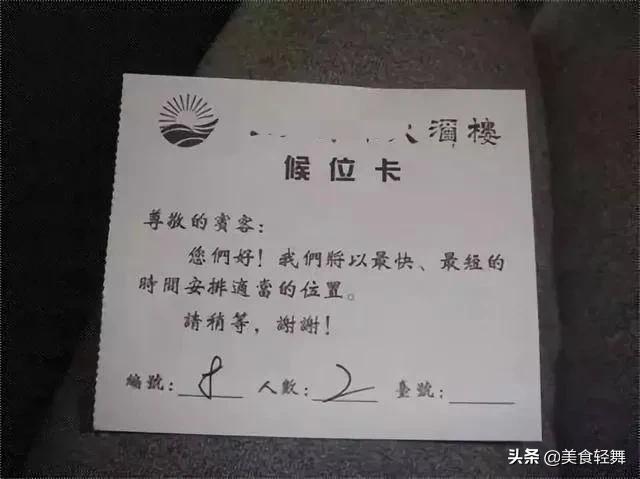 大酒樓
候位卡
尊敬的賓客:
您們好!我們將以最快、最短的
時間安排適當的位置。
請稍等,謝謝!
編號:8 人數:2 臺號:
头条 @美食轻舞